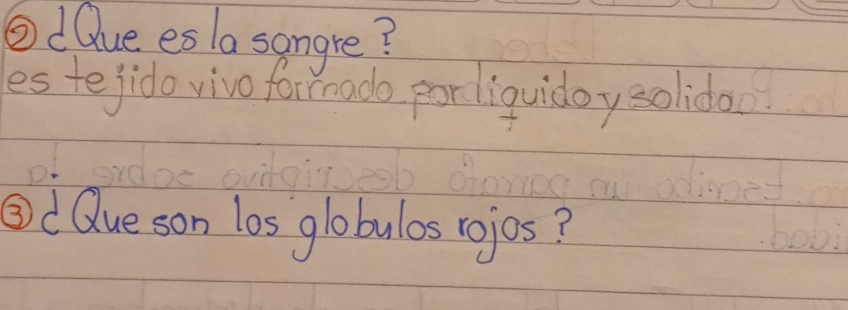 ② ¿Que es la sangre?
es tejido vivo formado por liquido y solido
③ ¿Que son los globulos rojos?